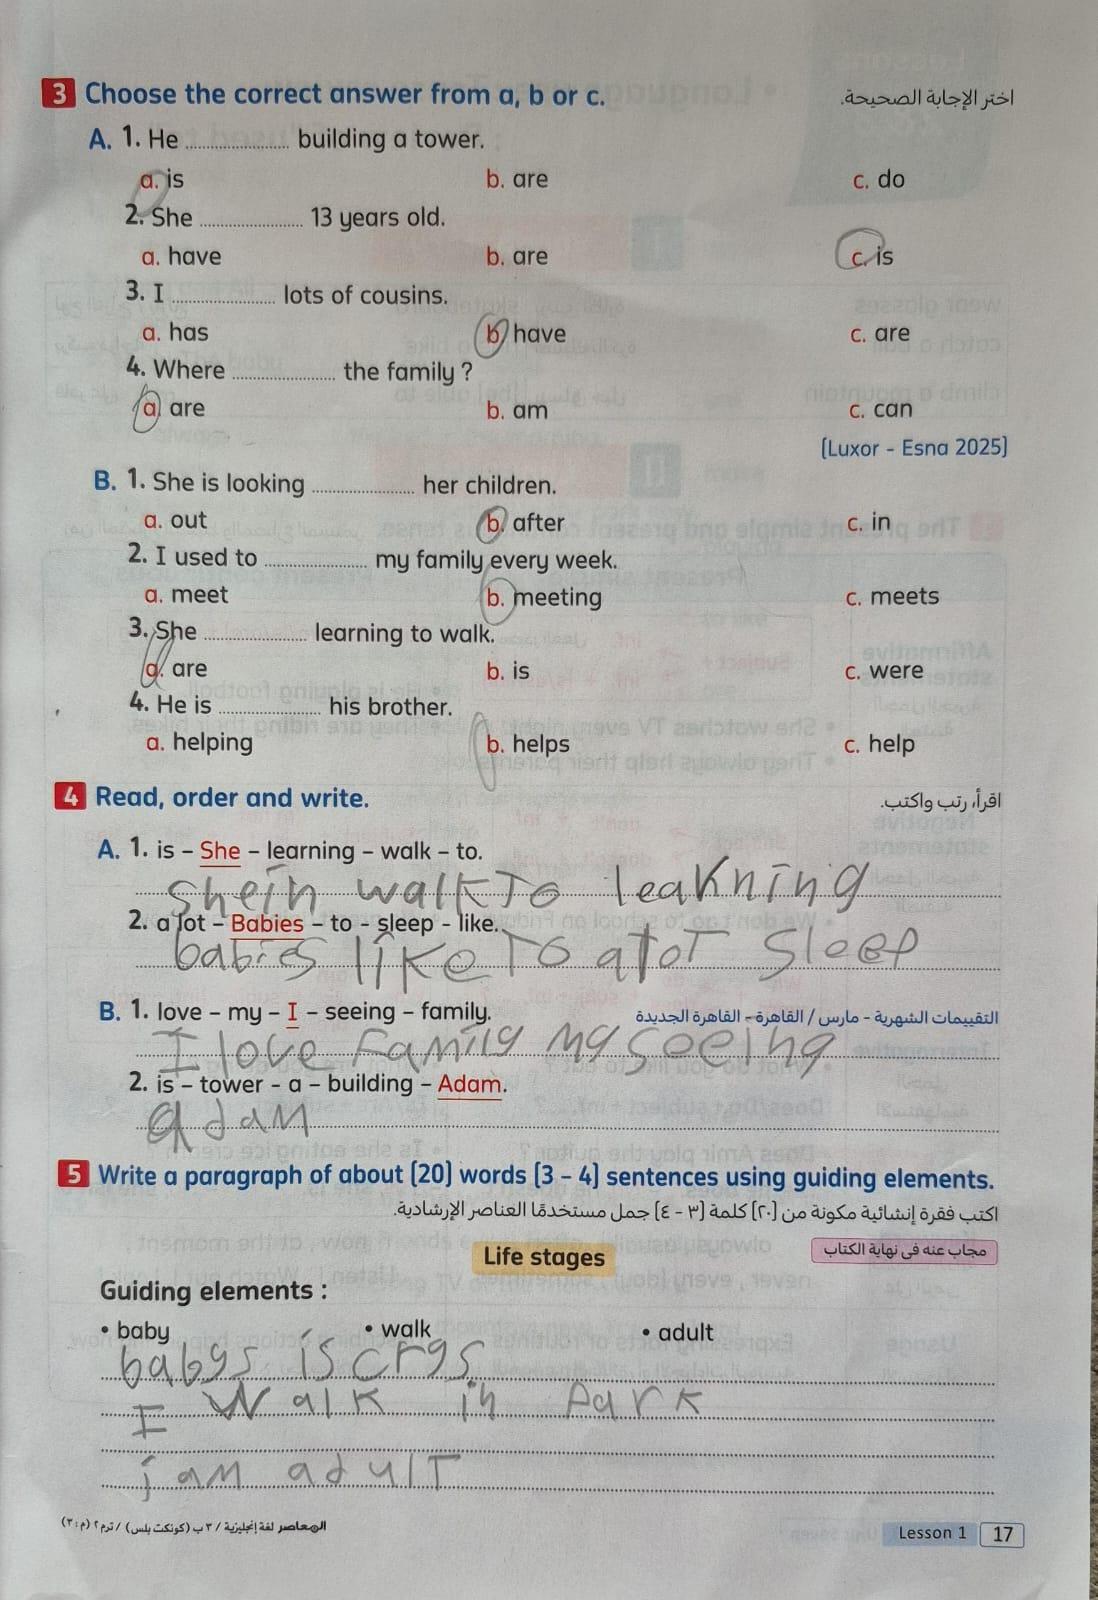 3 Choose the correct answer from a, b or c. اختر الإجابة الصحيحة.
A. 1. He .................... building a tower.
a. is b. are c. do
2. She .................... 13 years old.
a. have b. are c. is
3. I .................... lots of cousins.
a. has b. have c. are
4. Where .................... the family ?
a. are b. am c. can
(Luxor - Esna 2025)
B. 1. She is looking .................... her children.
a. out b. after c. in
2. I used to .................... my family every week.
a. meet b. meeting c. meets
3. She .................... learning to walk.
a. are b. is c. were
4. He is .................... his brother.
a. helping b. helps c. help
4 Read, order and write. اقرأ، رتب واكتب.
A. 1. is – She – learning – walk – to.
Shein walk To leaKning
2. a lot – Babies – to – sleep - like.
babies like To alot Sleep
B. 1. love – my – I – seeing – family. التقييمات الشهرية - مارس / القاهرة - القاهرة الجديدة
I love Family My seeing
2. is – tower – a – building – Adam.
adam
5 Write a paragraph of about (20) words (3 – 4) sentences using guiding elements.
اكتب فقرة إنشائية مكونة من (٢٠) كلمة (٣ - ٤) جمل مستخدمًا العناصر الإرشادية.
Life stages مجاب عنه في نهاية الكتاب
Guiding elements :
• baby • walk • adult
babys is crys
I walk in Park
i am adult
المعاصر لغة إنجليزية / ٣ ب (كونكت بلس) / ترم ٢ (م : ٣) Lesson 1 17